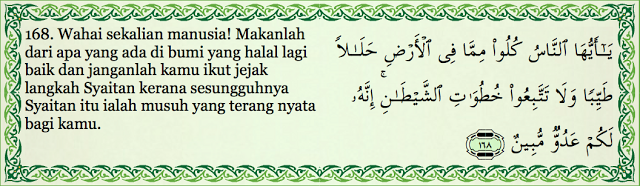 168. Wahai sekalian manusia! Makanlah
dari apa yang ada di bumi yang halal lagi
baik dan janganlah kamu ikut jejak
langkah Syaitan kerana sesungguhnya
Syaitan itu ialah musuh yang terang nyata
bagi kamu.
يَـٰٓأَيُّهَا ٱلنَّاسُ كُلُوا۟ مِمَّا فِى ٱلْأَرْضِ حَلَـٰلًا
طَيِّبًا وَلَا تَتَّبِعُوا۟ خُطُوَٰتِ ٱلشَّيْطَـٰنِ ۚ إِنَّهُۥ
لَكُمْ عَدُوٌّ مُّبِينٌ ١٦٨